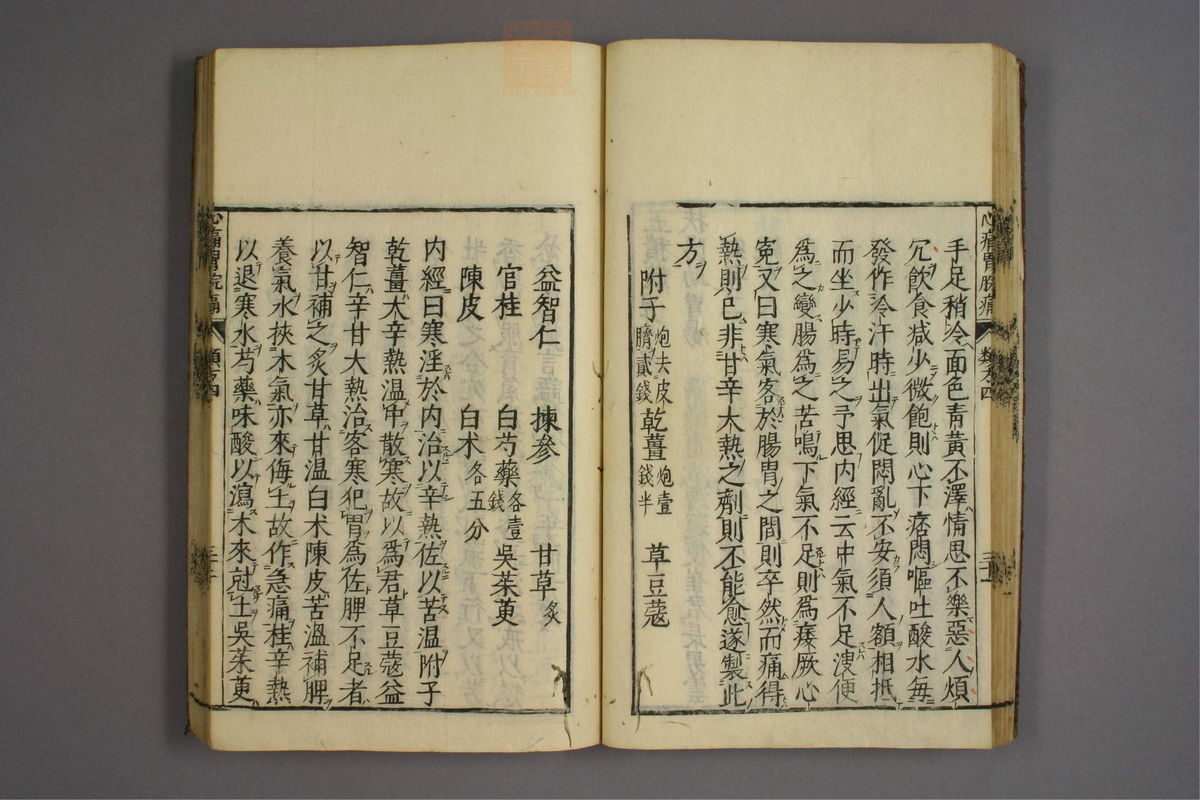 手足稍冷面色青黃不澤情思不樂惡人煩
冗飲食減少微飽則心下痞悶嘔吐酸水每
發作冷汗時出氣促悶亂不安須人額相抵
而坐少時易之予思内經云中氣不足溲便
爲之變腸爲之苦鳴下氣不足則爲痿厥心
寃又曰寒氣客於腸胃之間則卒然而痛得
熱則已非甘辛大熱之劑則不能愈遂製此
方
附子炮去皮臍貳錢 乾薑炮壹錢半 草豆蔻
益智仁 揀參 甘草炙
官桂 白芍藥各壹錢 吳茱萸
陳皮 白术各五分
内經曰寒淫於内治以辛熱佐以苦温附子
乾薑大辛熱温中散寒故以爲君草豆蔻益
智仁辛甘大熱治客寒犯胃爲佐脾不足者
以甘補之炙甘草甘温白术陳皮苦溫補脾
養氣水挾木氣亦來侮土故作急痛桂辛熱
以退寒水芍藥味酸以瀉木來尅土吳茱萸
心痛胃脘痛
類方四
心痛胃脘痛
類方四